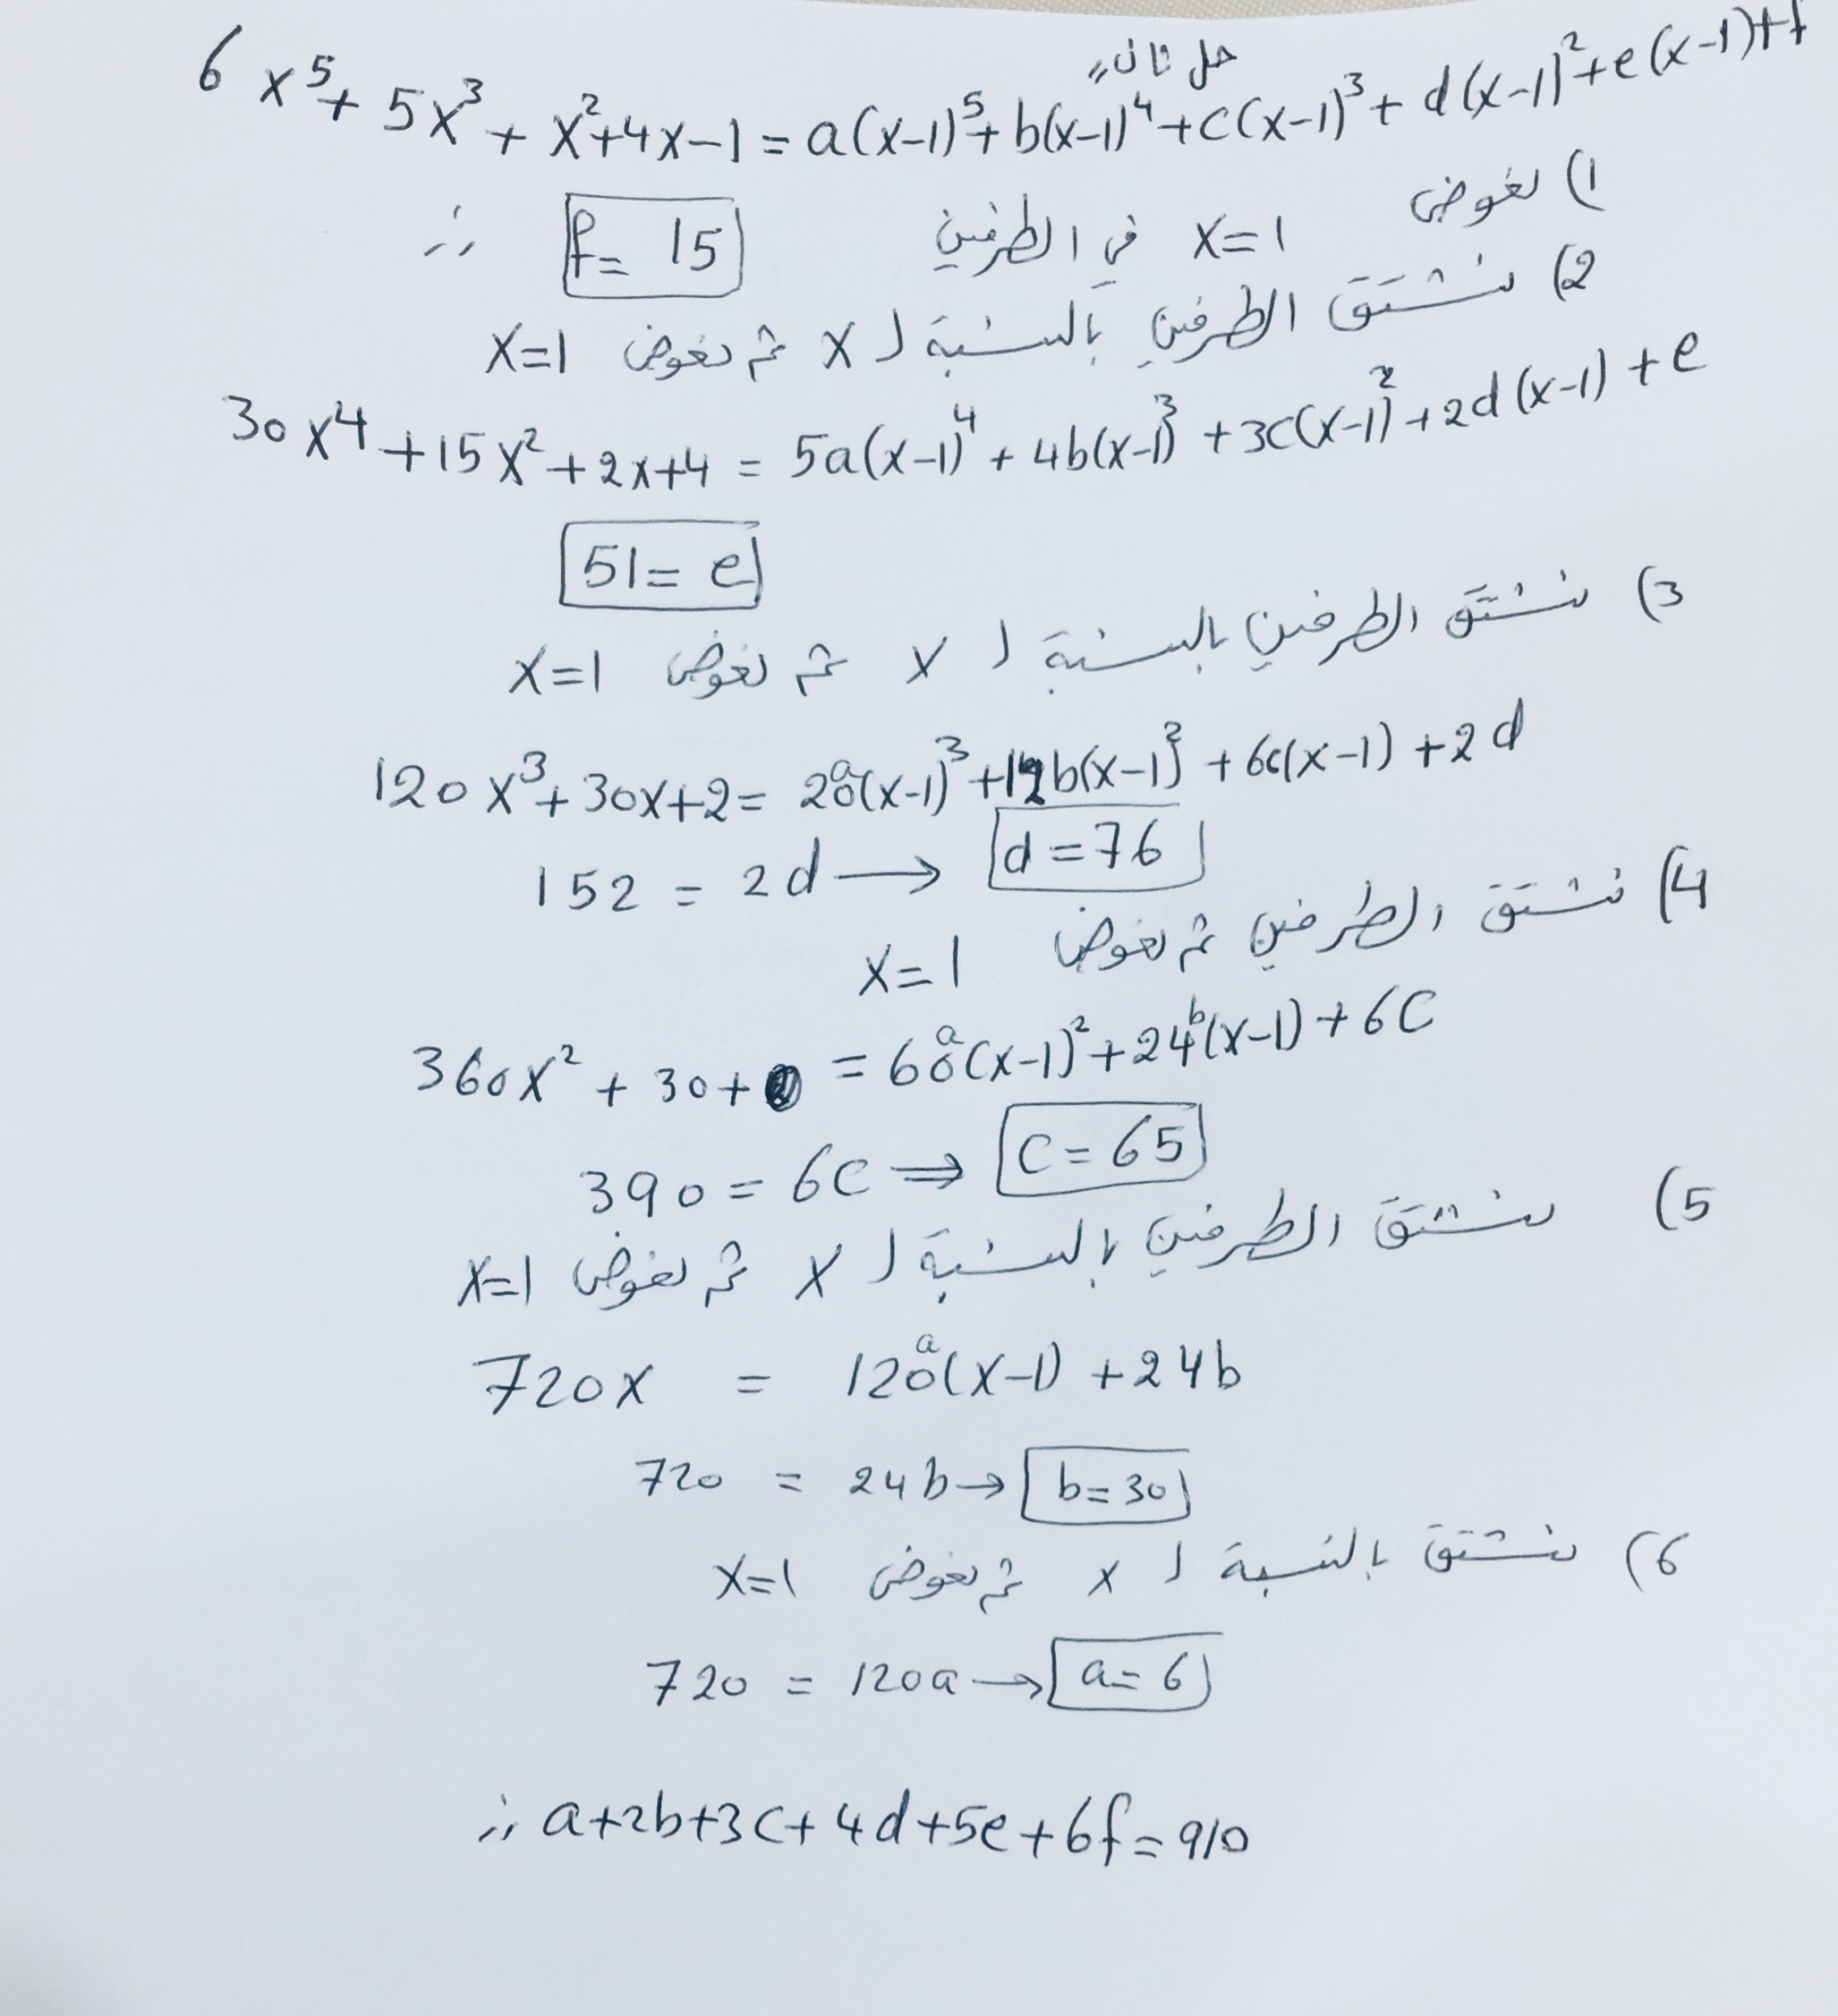 حل ثان،،
6x⁵ + 5x³ + x² + 4x - 1 = a(x-1)⁵ + b(x-1)⁴ + c(x-1)³ + d(x-1)² + e(x-1) + f
1) نعوض x=1 في الطرفين
∴ f = 15
2) نشتق الطرفين بالنسبة لـ x ثم نعوض x=1
30x⁴ + 15x² + 2x + 4 = 5a(x-1)⁴ + 4b(x-1)³ + 3c(x-1)² + 2d(x-1) + e
51 = e
3) نشتق الطرفين بالنسبة لـ x ثم نعوض x=1
120x³ + 30x + 2 = 20a(x-1)³ + 12b(x-1)² + 6c(x-1) + 2d
152 = 2d → d = 76
4) نشتق الطرفين ثم نعوض x=1
360x² + 30 + = 60a(x-1)² + 24b(x-1) + 6c
390 = 6c ⇒ c = 65
5) نشتق الطرفين بالنسبة لـ x ثم نعوض x=1
720x = 120a(x-1) + 24b
720 = 24b → b = 30
6) نشتق بالنسبة لـ x ثم نعوض x=1
720 = 120a → a = 6
∴ a+2b+3c+4d+5e+6f = 910